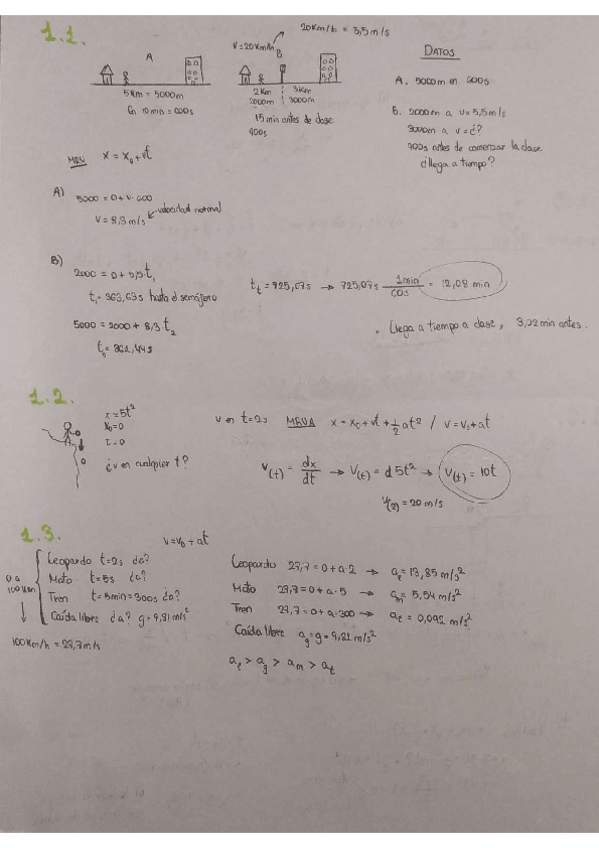 1.1.
20Km/h = 5,5m/s
A
V=20Km/h
B
5Km = 5000m
En 10min = 600s
2Km
2000m
3Km
3000m
15 min antes de clase
900s
DATOS
A. 5000m en 600s
B. 2000m a v=5,5m/s
3000m a v=¿?
900s antes de comenzar la clase
¿llega a tiempo?
MRU x = x₀+vt
A)
5000 = 0+v·600
v = 8,3m/s velocidad normal
B)
2000 = 0+5,5·t₁
t₁= 363,63s hasta el semáforo
5000 = 2000 + 8,3 t₂
t₂= 361,44s
tₜ = 725,07s → 725,07s 1min/60s = 12,08 min
Llega a tiempo a clase, 3,02min antes.
1.2.
x=5t²
x₀=0
t=0
¿v en cualquier t?
v en t=2s MRUA x=x₀+vt+1/2 at² / v=v₀+at
v(t) = dx/dt → v(t) = d 5t² → v(t) = 10t
v(2) = 20 m/s
1.3.
v=v₀+at
0 a 100Km
Leopardo t=2s ¿a?
Moto t=5s ¿a?
Tren t=5min=300s ¿a?
Caída libre ¿a? g=9,81m/s²
100Km/h = 27,7m/s
Leopardo 27,7=0+a·2 → aₗ=13,85 m/s²
Moto 27,7=0+a·5 → aₘ = 5,54 m/s²
Tren 27,7=0+a·300 → aₜ = 0,092 m/s²
Caída libre a_g=g=9,81 m/s²
aₗ > a_g > aₘ > aₜ